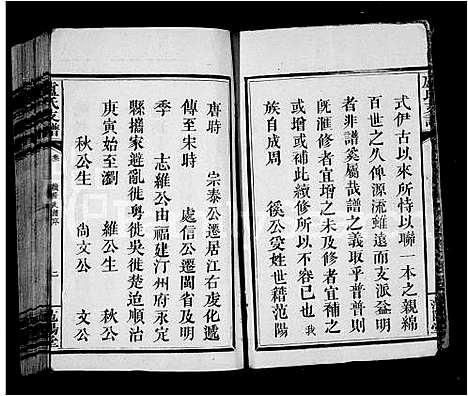 式伊古以來所恃以聯一本之親綿
百世之久俾源流雖遠而支派益明
者非譜奚屬哉譜之義取乎普普則
既滙修者宜增之未及修者宜補之
或增或補此續修所不容已也我
族自成周 徯公受姓世籍范陽
唐時 宗泰公遷居江右虔化遞
傳至宋時 處信公遷閩省及明
季 志維公由福建汀州府永定
縣攜家避亂徙粵徙吳徙楚迨順治
庚寅始至瀏 維公 秋公
秋公生 尙文公 文公
盧氏支譜
卷
七